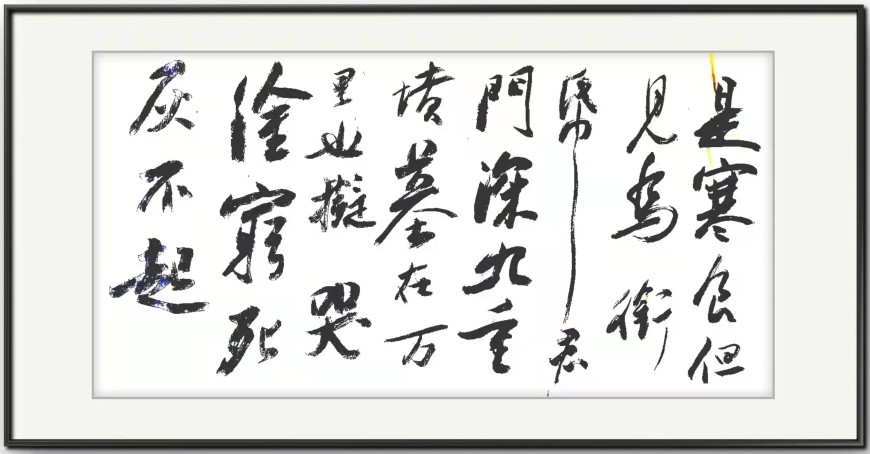 是寒食但
見烏銜
帋君
門深九重
墳墓在万
里也擬哭
塗窮死
灰不起